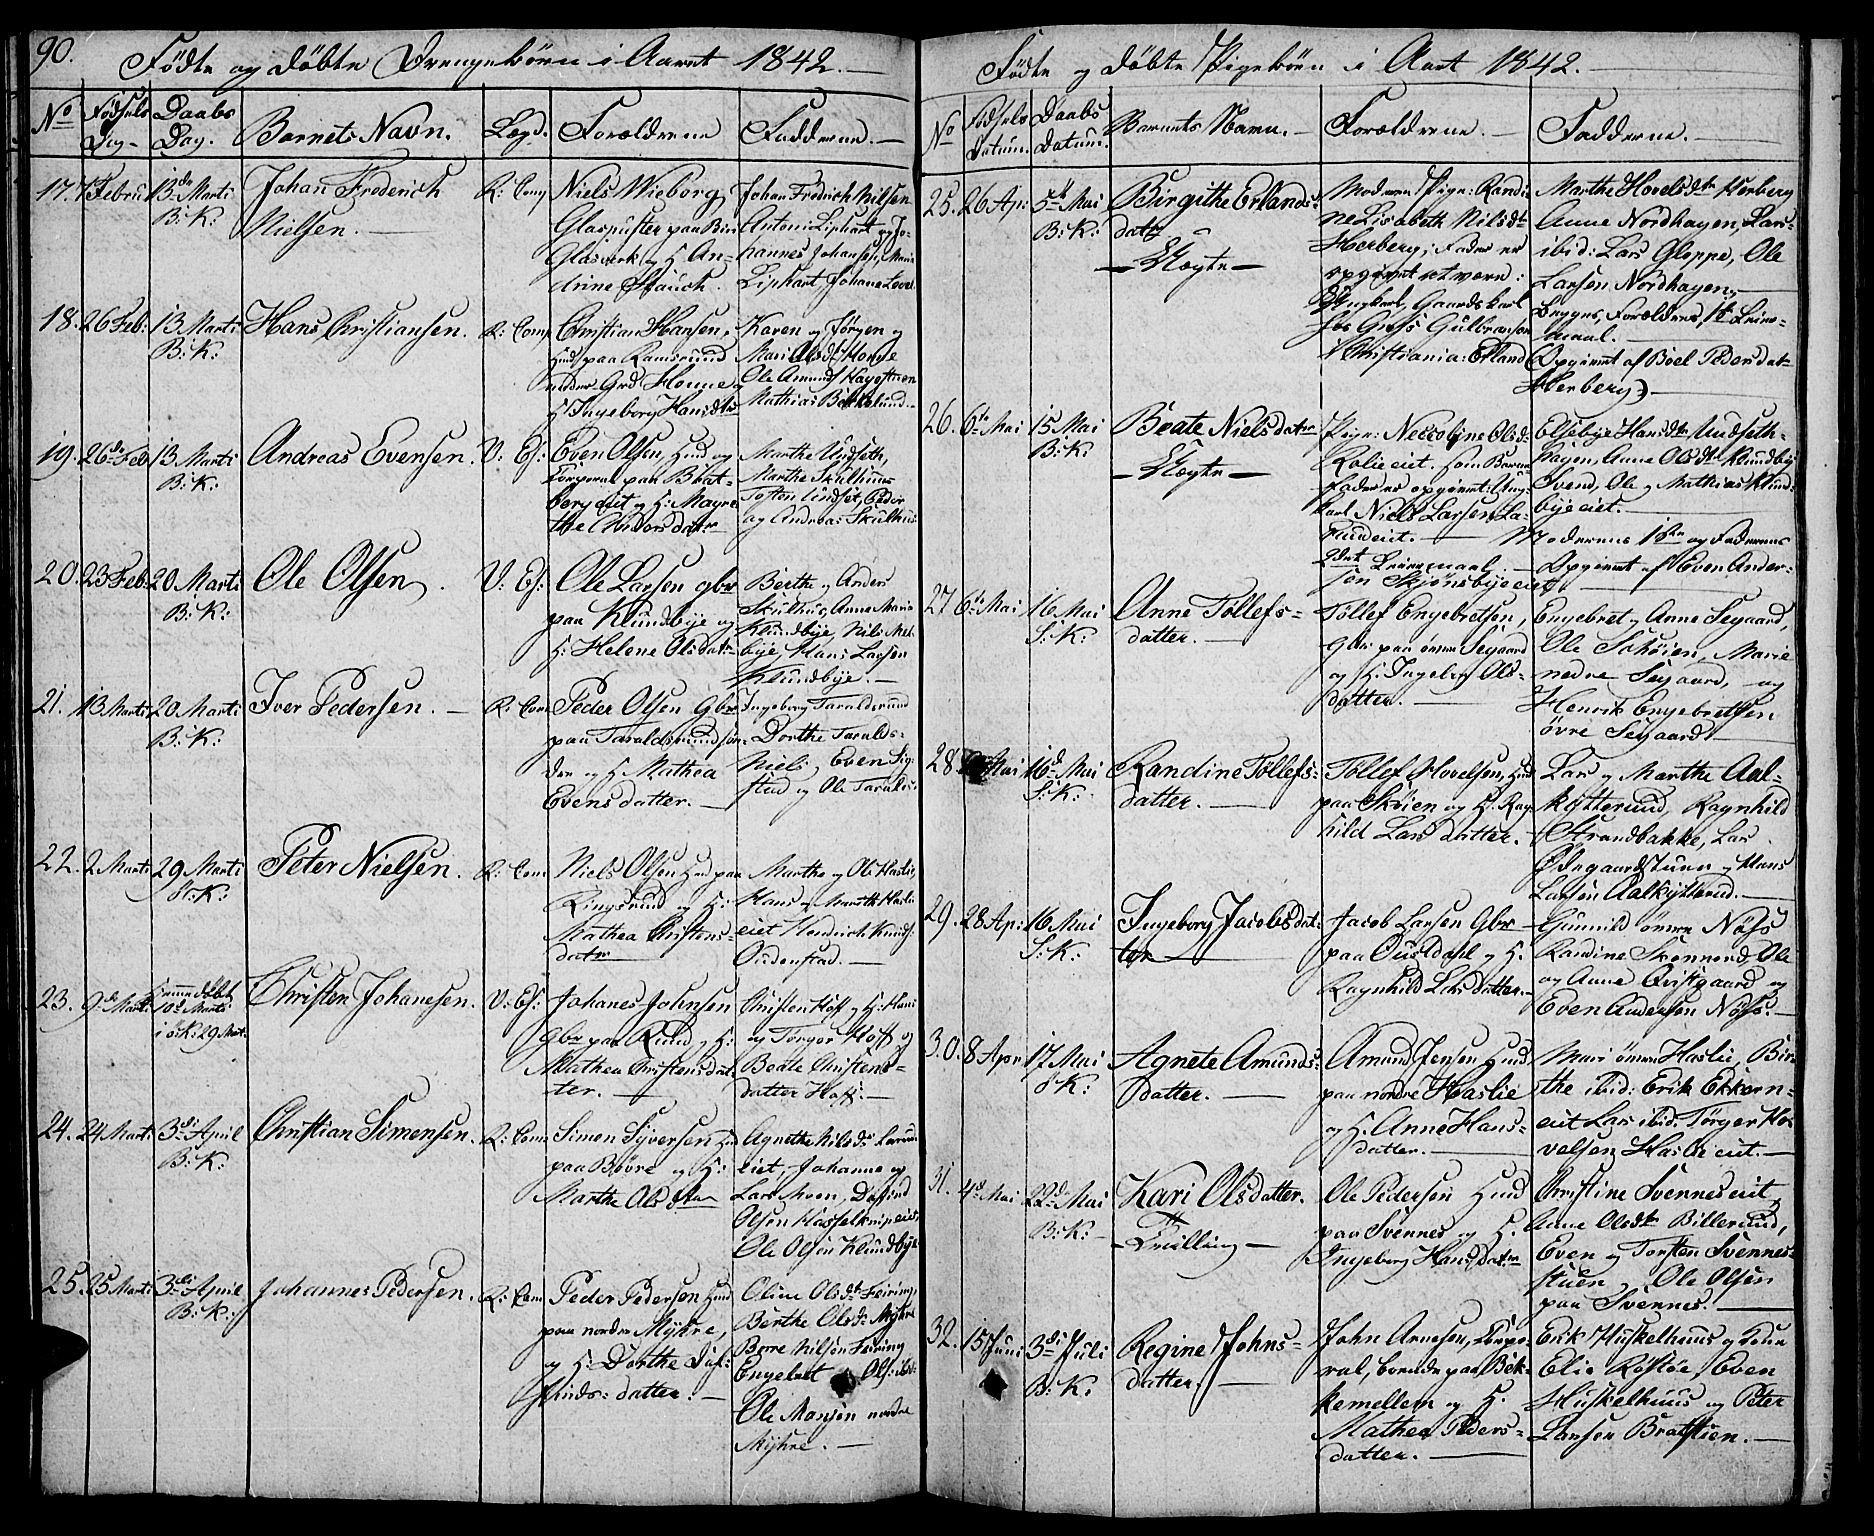 90.
Fødte og døbte Drengebørn i Aaret 1842.
No
Fødsels Dag
Daabs Dag.
Barnets Navn.
Lægd.
Forældrene
Fadderne.
17. 7 Febru
13de Marti
B: K:
Johan Frederich
Nielsen.
R: Comp
Niels Wieborg,
Glaspuster paa Biri
Glasverk og H. An-
drine Stauch.
Johan Fredrich Nilsen
Antoni Liphart og Jo-
hannes Johansen, Maria
Liphart, Johane
18. 26 Feb:
13 Marti
B: K:
Hans Christiansen.
R: Comp
Christian Hansen,
Huusm paa Ramsrund
under Grd Honne og
H. Ingeborg Hansdtr
Karen og Jørgen og
Mari Olsdtr Honne
Ole Amunds
Mathias
19. 26de Feb
13 Marti
B: K:
Andreas Evensen.
V: Es:
Even Olsen, Husm og
Corporal paa Brat-
berg eiet og H: Magre-
the Andersdatr
Marthe Undseth,
Marthe Skulhuus
Tosten Undset, Peder
og Andreas Skulhus
20. 23 Feb:
20 Marti
B: K:
Ole Olsen.
V: Es:
Ole Larsen gbr
paa Klundbye og
H: Helene Olsdatr
Berthe og Anders
Skulhus, Anne Maria
Klundbye, Nils
bye, Hans Larsen
Klundbye.
21. 13 Marti
20 Marti
B: K:
Iver Pedersen.
R: Com
Peder Olsen Gbr
paa Taraldsrund søn-
dre og H Mathea
Evensdatter.
Ingeborg Taraldsrund
Dorthe Taralds-
Niels, Even Sig-
stad og Ole Taralds:
22. 2 Marti
29 Marti
S: K:
Peter Nielsen.
R: Com
Niels Olsen Husm paa
Ringsrund og H:
Mathea Christens-
datr
Marthe og Ole Haslie,
Hans og Marthe Haslie
eiet Hendrich Knuds:
Oudenstad.
23. 9de Marti
hjemmedøbt
10de Marti
i S: K: 29 Mart:
Christen Johanesen.
V: Es:
Johanes Johnsen
Gbr paa Rund, H:
Mathea Christensdat-
ter.
Christen Hoff og H: Mari
og Torgor Hoff og
Beate Christens-
datter Hoff.
24. 24 Marti
3de April
B: K:
Christian Simensen.
R: Com
Simen Syversen Husm
paa Bøvre og H:
Marthe Olsdtr
Agnethe Nilsdtr
eiet, Johanne og
Lars Moen, Dafind
Olsen Hasselknipeiet,
Ole Olsen Klundbye
25. 25 Marti
3de April
B: K:
Johannes Pedersen.
R: Com
Peder Pedersen Husm
paa nordre Myhre,
og H: Dorthe Daf-
finds: datter.
Oline Olsdt Feiring,
Berthe Olsd: Myhre
Børre Nilsen Feiring
Engebret Ols: ibd:
Ole Mansen nordre
Myhre.
Fødte og døbte Pigebørn i Aaret 1842.
No
Fødsels Datum.
Daabs Datum.
Barnets Navn.
Forældrene.
Fadderne.
25. 26 Ap:
5te Mai
B: K:
Birgithe Erlands-
datr
Uægte
Moderen Pige: Randi-
ne Lisabeth Nilsdt
Herberg; Fader er
opgivet at være:
Ungkarl, Gaardskarl
hos Groß Gulbransen
i Christiania: Erland
Marthe Hovelsdtr Herberg
Anne Nordhagen, Lars
ibid: Lars Gloppe, Ole
Larsen Nordhagen.
Begges Forældres, 1t Leier-
maal.
Opgivet af Boel Pedersdat-
Herberg
26. 6te Mai
15 Mai
B: K:
Beate Nielsdatr
Uægte
Pige: Nicoline Olsd:
Rolie eiet. Som Barne
fader er opgivet: Ung-
karl Niels Larsen La-
rundeiet.
Elsebye Hansdtr Undseth-
hagen, Anne Olsdt Klundbye
Svend, Ole og Mathias Klund-
byeeiet.
Moderens 1ste og Faderens
2det Leiermaal. Opgivet af Even Ander-
sen Skjønsbyeeiet
27 6te Mai
16 Mai
S: K:
Anne Tollefs-
datter.
Tollef Engebretsen,
gbr: paa øvre Segaard
og H. Ingeborg Ols-
datter.
Engebret og Anne Segaard,
Ole Schøien, Marie
nedre Segaard, og
Henrik Engebretsen
øvre Segaard
28 Mai
16d Mai
S: K:
Randine Tollefs-
datter.
Tollef Hovelsen, Husm
paa Skøien og H: Ragn
hild Larsdatter.
Lars og Marthe Aal-
kytterund, Ragnhild
Strandbakke, Lars
Ødegaardstuen og Hans
Larsen Aalkytterud.
29. 28 Ap:
16 Mai
S: K:
Ingeborg Jacobsdat-
ter
Jacob Larsen Gbr
paa Ousdahl og H.
Ragnhild Larsdatter.
Gunnild øvre Nøss
Randine Skonnord, Ole
og Anne Qvisgaard og
Even Andersen Nøss.
30. 8 Apr
17 Mai
S: K:
Agnete Amunds-
datter.
Amund Jensen Husm
paa nordre Haslie
og H. Anne Hans-
datter.
Mari øvre Haslie, Bir-
the ibid: Erik Ekkern-
eiet Lars ibid: Tørger Ho-
velsen Haslieeiet.
31. 4d Mai
22de Mai
B: K:
Kari Olsdatter.
Tvilling
Ole Pedersen Husm
paa Svennes og H.
Ingeborg Hansdatr
Christine Svenneseiet,
Anne Olsdtr Billerund,
Even og Torsten Svennes-
stuen og Ole Olsen
paa Svennes.
32. 15 Juni
3die Juli
B: K:
Regine Johns-
datter.
John Arnesen, Korpo-
ral, boende paa Bek-
kemellem og H.
Mathea Peders-
datter.
Erik Huskelhuus og Kone
Elie Røstøe, Even
Huskelhuus og Peter
Larsen Bratstien.